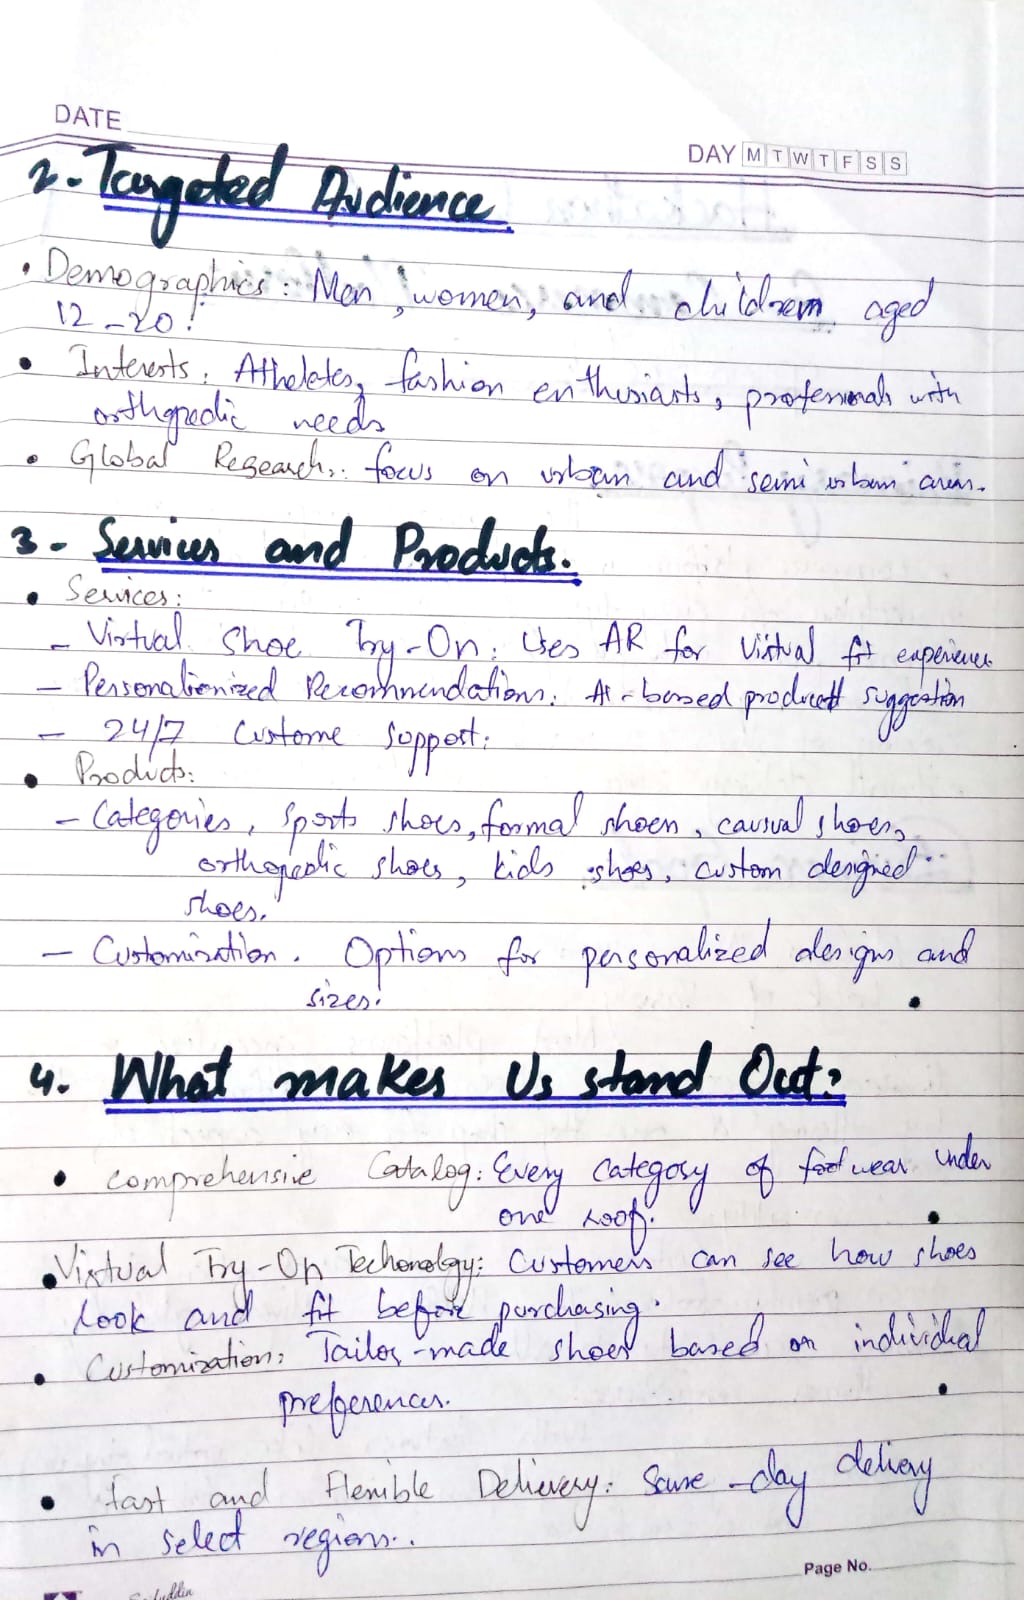 DATE
DAY M T W T F S S
2. Targeted Audience
• Demographics: Men, women, and children aged
12-20!
• Interests: Atheletes, fashion enthusiasts, professionals with
orthopedic needs
• Global Research: focus on urban and semi urban areas.
3- Services and Products.
• Services:
- Virtual Shoe Try-On: Uses AR for Virtual fit experience
- Personationized Recommendations: AI-based product suggestion
- 24/7 Custome Support:
• Products:
- Categories, Sports shoes, formal shoes, causual shoes,
orthopedic shoes, kids shoes, custom designed
shoes.
- Customization. Options for personalized designs and
sizes.
4. What makes Us stand Out?
• Comprehensive Catalog: Every Category of footwear under
one roof.
• Virtual Try-On Techonology: Customers can see how shoes
look and fit before purchasing.
• Customization: Tailor-made shoes based on individual
preferences.
• fast and Flexible Delievery: Same-day delivery
in select regions..
Page No.